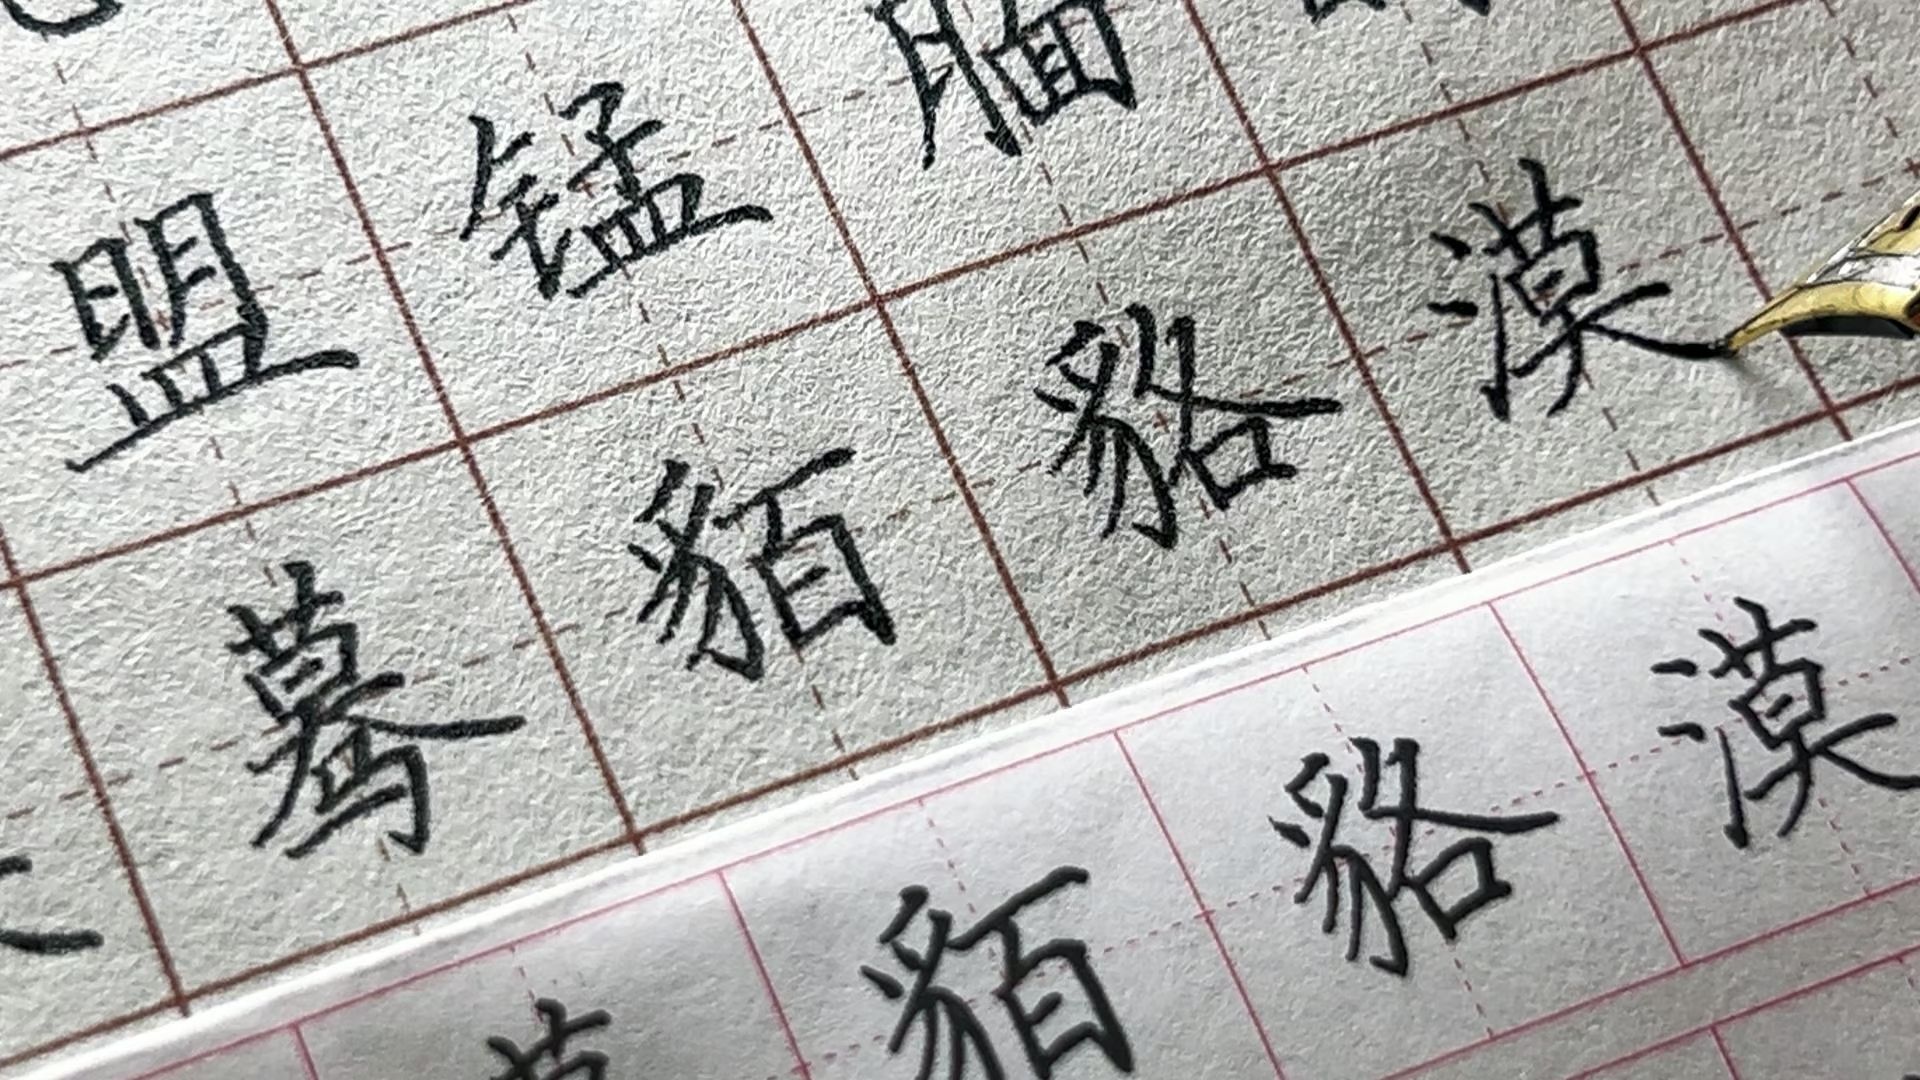 盟锰腼
蓦貊貉漠
貊貉漠